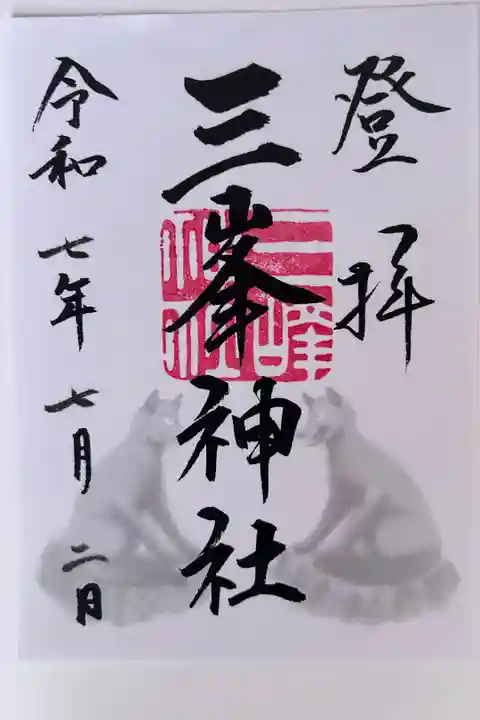 登拝
三峯神社
三峰神社
令和七年七月二日